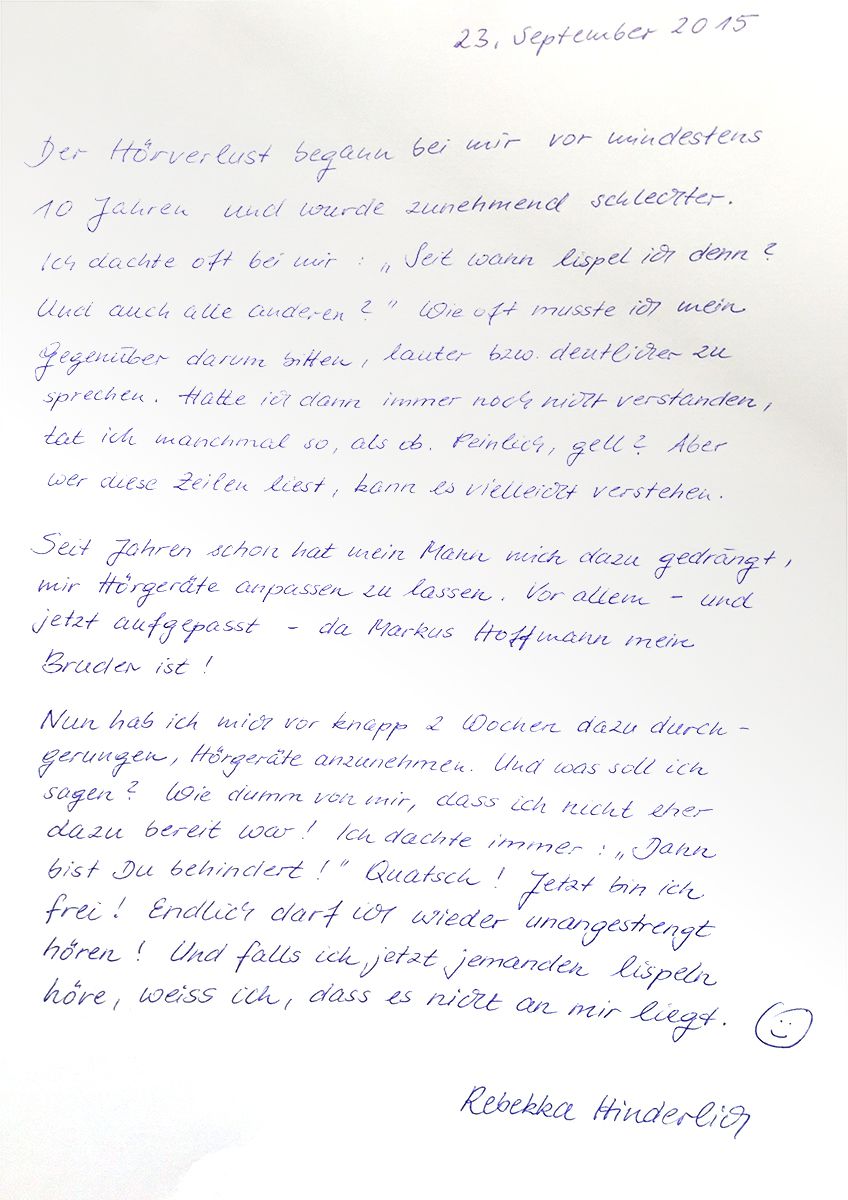 23. September 2015
Der Hörverlust begann bei mir vor mindestens
10 Jahren und wurde zunehmend schlechter.
Ich dachte oft bei mir : „Seit wann lispel ich denn?
Und auch alle anderen?" Wie oft musste ich mein
Gegenüber darum bitten, lauter bzw. deutlicher zu
sprechen. Hatte ich dann immer noch nicht verstanden,
tat ich manchmal so, als ob. Peinlich, gell? Aber
wer diese Zeilen liest, kann es vielleicht verstehen.
Seit Jahren schon hat mein Mann mich dazu gedrängt,
mir Hörgeräte anpassen zu lassen. Vor allem - und
jetzt aufgepasst - da Markus Hoffmann mein
Bruder ist!
Nun hab ich mich vor knapp 2 Wochen dazu durch-
gerungen, Hörgeräte anzunehmen. Und was soll ich
sagen? Wie dumm von mir, dass ich nicht eher
dazu bereit war! Ich dachte immer : „Dann
bist Du behindert!" Quatsch! Jetzt bin ich
frei! Endlich darf ich wieder unangestrengt
hören! Und falls ich jetzt jemanden lispeln
höre, weiss ich, dass es nicht an mir liegt. ☺
Rebekka Hinderlich